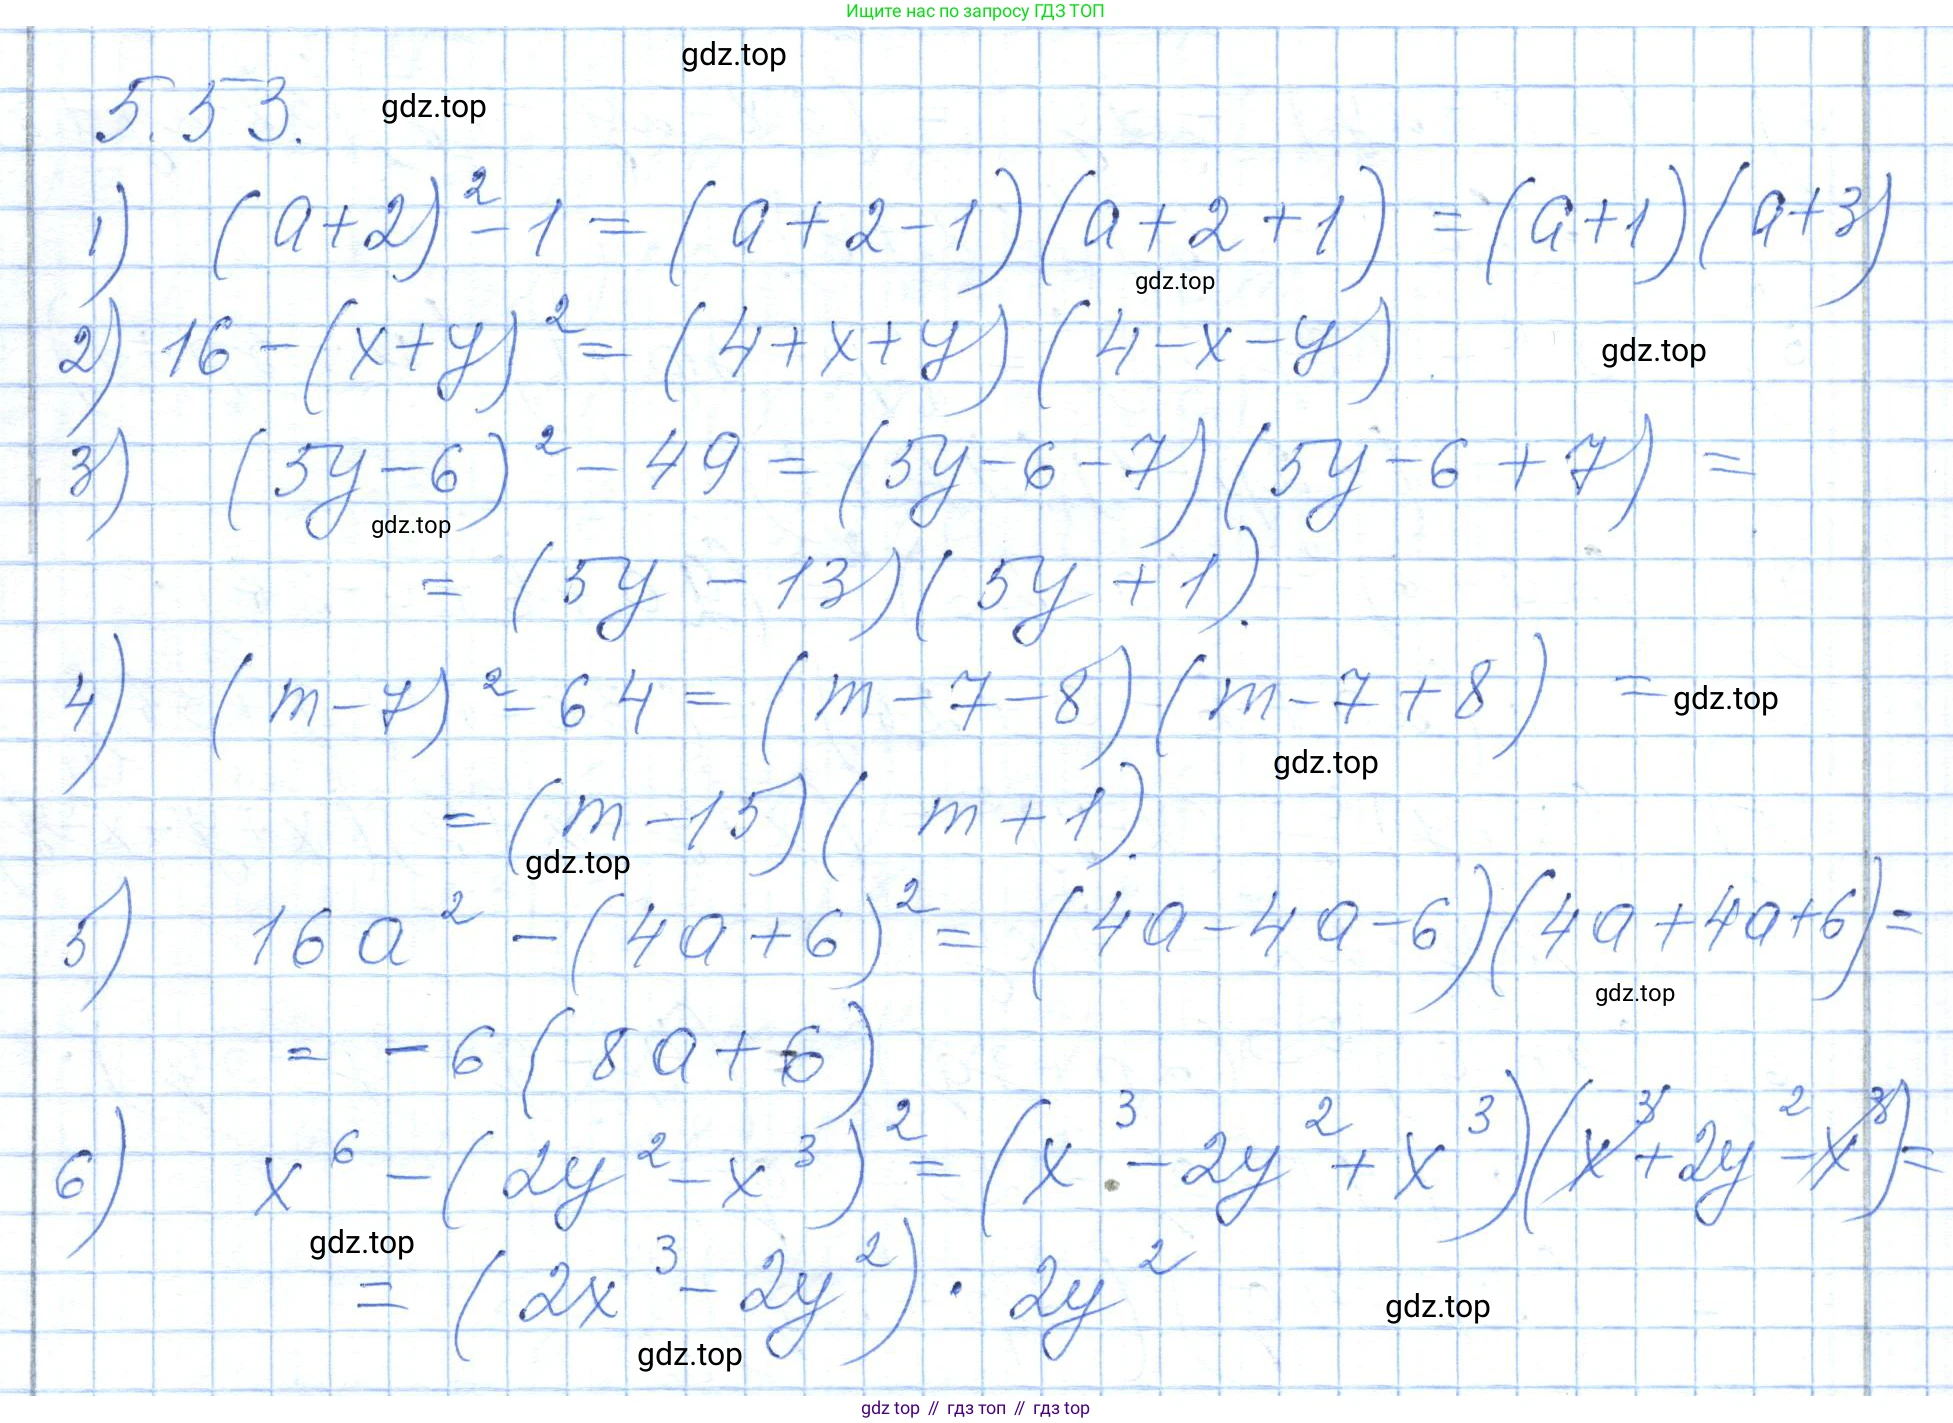 Ищите нас по запросу ГДЗ ТОП
gdz.top
5.53. gdz.top
1) (a+2)² - 1 = (a+2-1)(a+2+1) = (a+1)(a+3)
gdz.top
2) 16 - (x+y)² = (4+x+y)(4-x-y)
gdz.top
3) (5y-6)² - 49 = (5y-6-7)(5y-6+7) =
gdz.top
= (5y-13)(5y+1).
4) (m-7)² - 64 = (m-7-8)(m-7+8) =
gdz.top
gdz.top
= (m-15)(m+1).
gdz.top
5) 16a² - (4a+6)² = (4a-4a-6)(4a+4a+6) =
gdz.top
= -6(8a+6)
6) x⁶ - (2y²-x³)² = (x³-2y²+x³)(x³+2y²-x³) =
gdz.top
= (2x³-2y²)·2y²
gdz.top
gdz.top
gdz top // гдз топ // гдз top